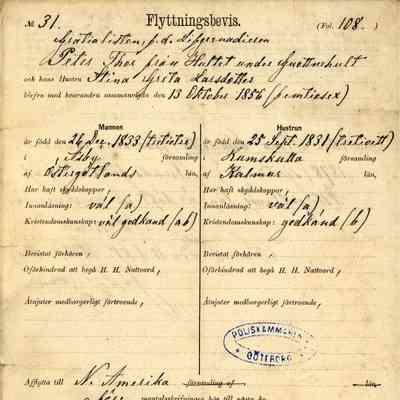 № 31. Flyttningsbevis. (Fol. 108.)
Gratialisten, f.d. Gifvernadieren
Peter Thör från Hultet under Gnötteshult
och hans Hustru Stina Greta Larsdotter
blefvo med hvarandra sammanvigda den 13 Oktober 1856 (femtiosex)
Mannen
är född den 26 Dec. 1833 (trettiotre)
i Asby församling
af Östergötlands län,
Har haft skyddskoppor,
Innanläsning: väl (a)
Kristendomskunskap: väl godkänd (ab)
Bevistat förhören,
Oförhindrad att begå H. H. Nattvard,
Åtnjuter medborgerligt förtroende,
Hustrun
är född den 25 Sept. 1831 (trettioett)
i Rumskulla församling
af Kalmar län,
Har haft skyddskoppor,
Innanläsning: väl (a)
Kristendomskunskap: godkänd (b)
Bevistat förhören,
Oförhindrad att begå H. H. Nattvard,
Åtnjuter medborgerligt förtroende,
POLISKAMMAREN
GÖTEBORG
Afflytta till N. Amerika församling af län,
mantalsskrifningen hör till nästa år